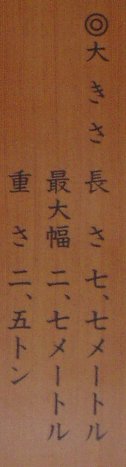 ◎大きさ 長さ 七、七メートル
最大幅 二、七メートル
重さ 二、五トン